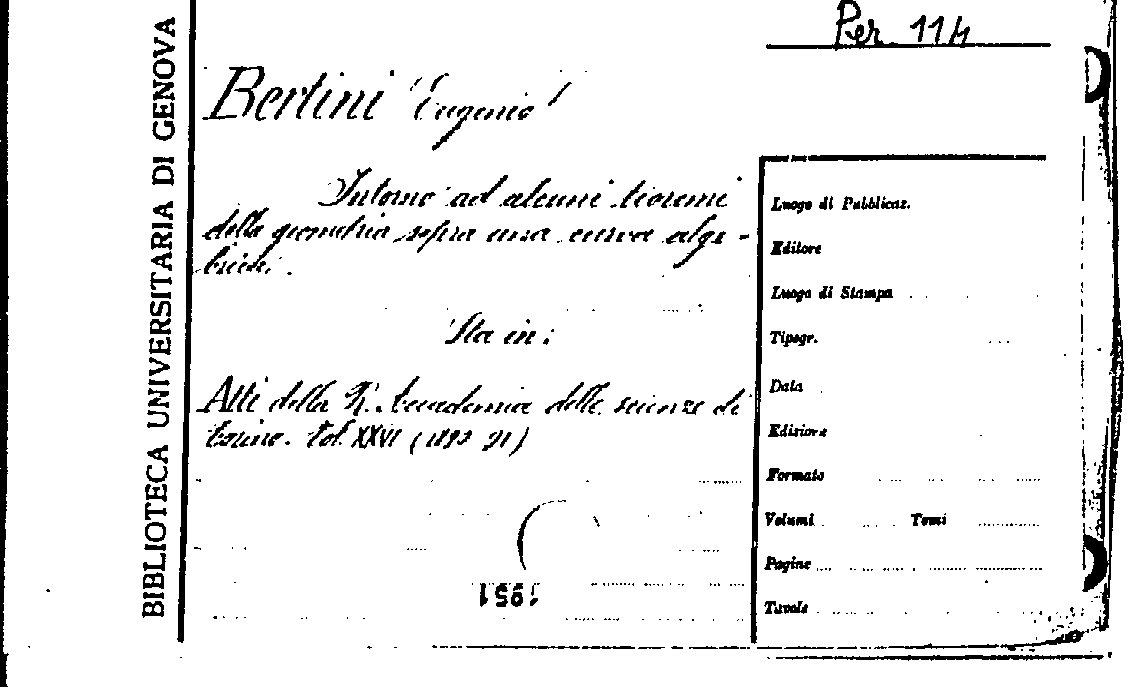 Per. 114
BIBLIOTECA UNIVERSITARIA DI GENOVA
Bertini (Eugenio)
Intorno ad alcuni teoremi
della geometria sopra una curva alge-
brica.
Sta in:
Atti della R. Accademia delle scienze di
Torino. Vol. XXVI (1890-91)
1951
Luogo di Pubblicaz.
Editore
Luogo di Stampa
Tipogr.
Data
Edizione
Formato
Volumi Tomi
Pagine
Tavole